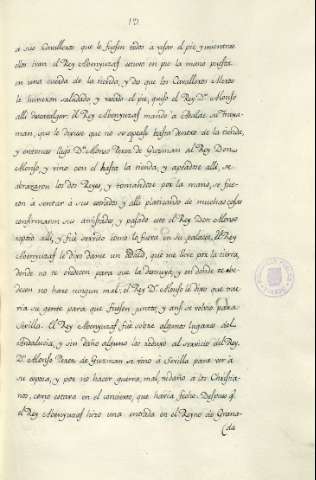 à sus Cavalleros que le fuesen todos a vesar el pie, y mientras
ellos ivan el Rey Abenyuzaf estuvo en pie la mano puesta
en una cuerda de la tienda, y do que los Cavalleros Moros
le huvieron saludado y vesado el pie, quiso el Rey Dn. Alonso
alli descavalgar. El Rey Abenyuzaf mandò à Abdalac su truxa-
man, que le dixese que no se apease hasta dentro de la tienda,
y entonces llegò Dn. Alonso Perez de Guzman al Rey Don
Alonso, y vino con el hasta la tienda, y apeadose alli, se
abrazaron los dos Reyes, y tomandose por la mano, se fue-
ron à sentar à sus estrados, y alli platicando de muchas cosas
confirmaron sus amistades, y pasado esto el Rey Don Alonso
reposò alli, y fuè servido como si fuera en su palacio. El Rey
Abenyuzaf le dixo dame un Adalid, que me lleve por la tierra,
donde no te ovedecen para que la destruya, y en donde te obe-
decen no hare ningun mal; el Rey Dn. Alonso le dixo que trae-
ria su gente para que fuesen juntos, y ansi se volviò para
Sevilla. El Rey Abenyuzaf fuè sobre algunos lugares del
Andalucia, y sin daño alguno los reduxo al servicio del Rey.
Dn. Alonso Perez de Guzman se vino à Sevilla para ver à
su esposa, y por no hacer guerra, mal, ni daño à los Christia-
nos, como estava en el concierto, que havia fecho. Despues q.
el Rey Abenyuzaf hizo una entrada en el Reyno de Grana-
da